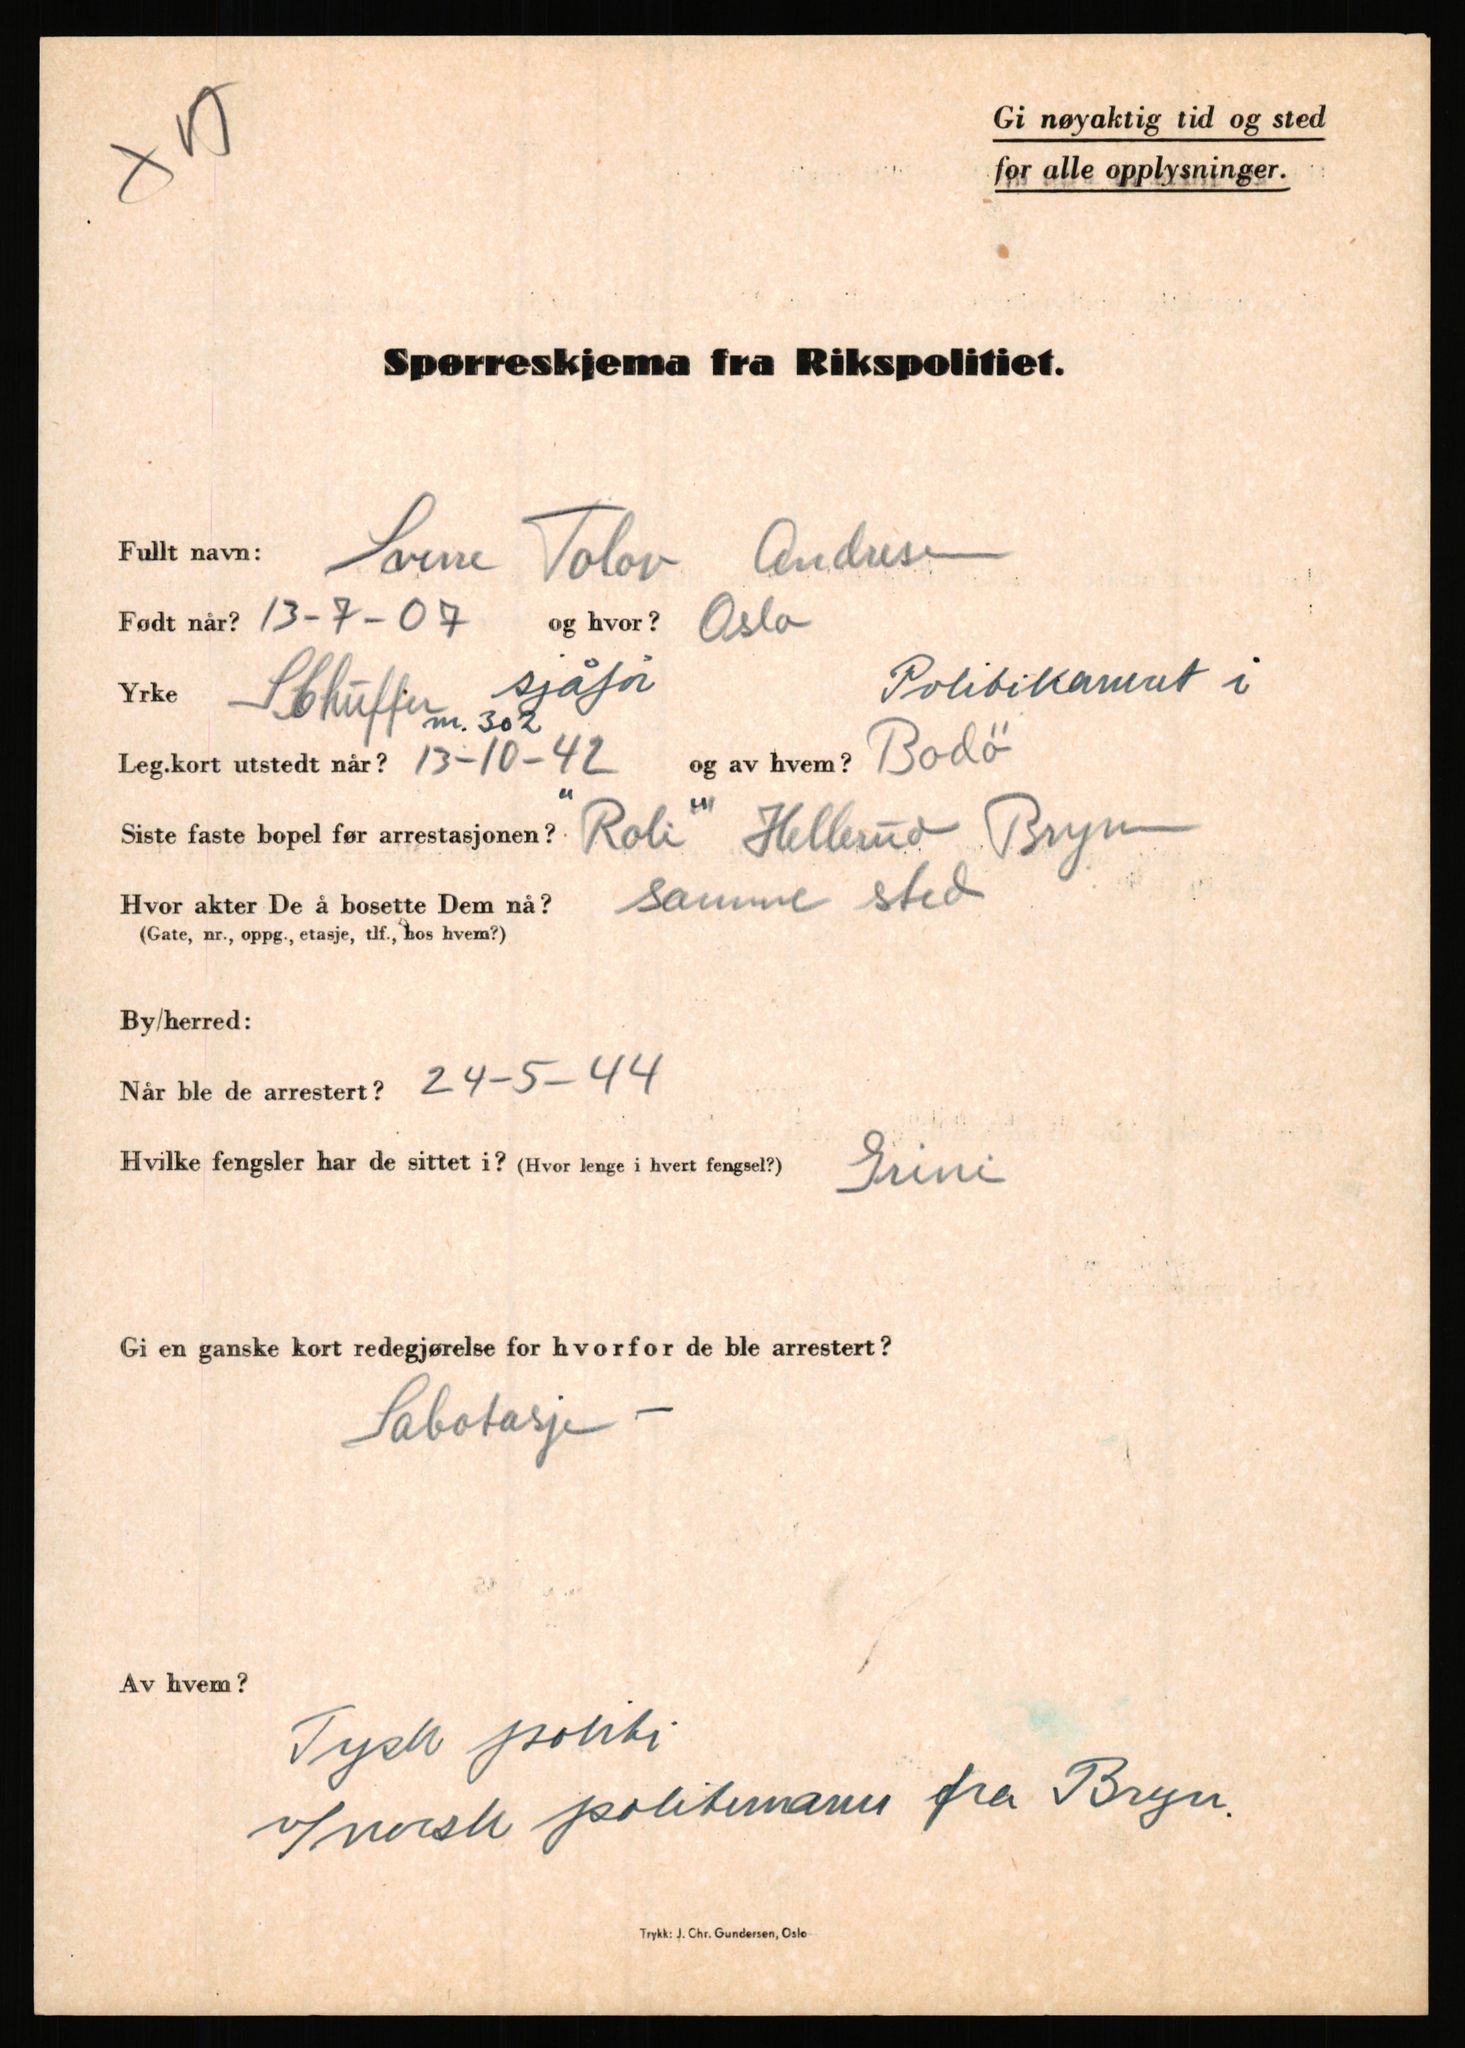 Gi nøyaktig tid og sted
for alle opplysninger.
Spørreskjema fra Rikspolitiet.
Fullt navn: Sverre Tolov Andresen
Født når? 13-7-07 og hvor? Oslo
Yrke sjåfør Politikamret i
nr. 302
Leg.kort utstedt når? 13-10-42 og av hvem? Bodö
Siste faste bopel før arrestasjonen? "Roli" Hellerud Bryn
Hvor akter De å bosette Dem nå? samme sted
(Gate, nr., oppg., etasje, tlf., hos hvem?)
By/herred:
Når ble de arrestert? 24-5-44
Hvilke fengsler har de sittet i? (Hvor lenge i hvert fengsel?) Grini
Gi en ganske kort redegjørelse for hvorfor de ble arrestert?
Sabotasje –
Av hvem?
Tysk politi
v/norsk politimann fra Bryn.
Trykk: J. Chr. Gundersen, Oslo